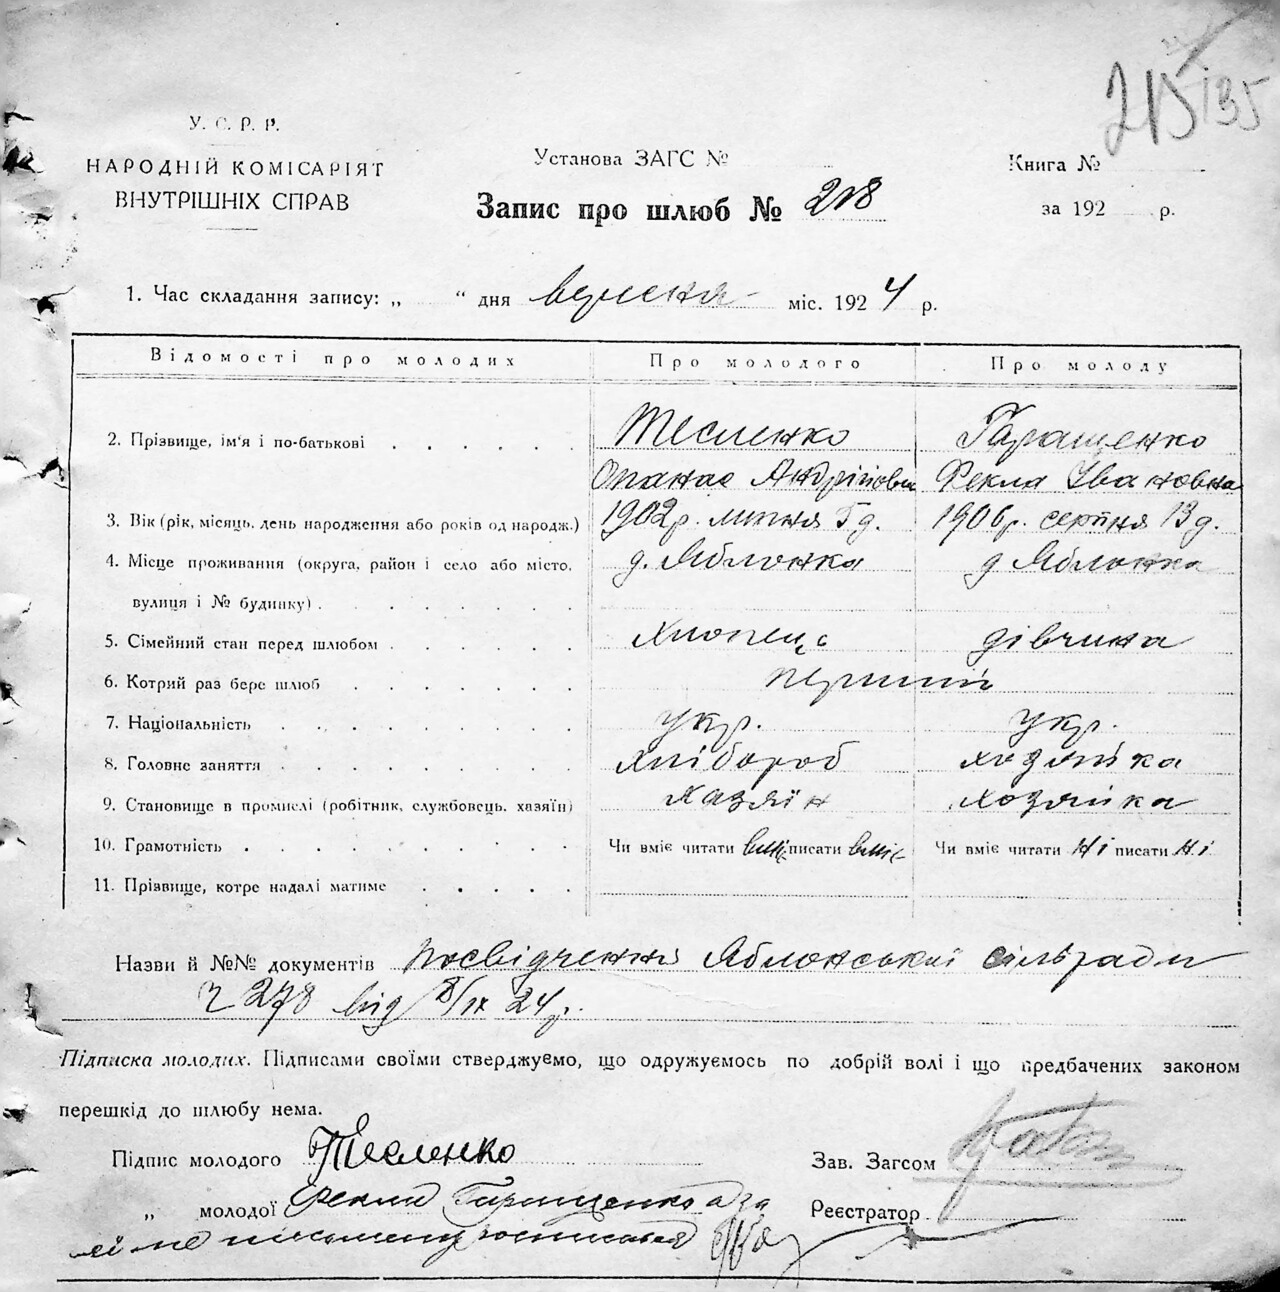 215 135
У. С. Р. Р.
НАРОДНІЙ КОМІСАРІЯТ
ВНУТРІШНІХ СПРАВ
Установа ЗАГС №
Запис про шлюб № 218
Книга №
за 192 р.
1. Час складання запису: „ “ дня вересня міс. 1924 р.
Відомості про молодих Про молодого Про молоду
2. Прізвище, ім'я і по-батькові Тесленко Гаращенко
Опанас Андрійович Фекла Ивановна
3. Вік (рік, місяць, день народження або років од народж.) 1902 р. липня 5 д. 1906 р. серпня 13 д.
4. Місце проживання (округа, район і село або місто, д. Яблонка д Яблонка
вулиця і № будинку)
5. Сімейний стан перед шлюбом хлопець дівчина
6. Котрий раз бере шлюб перший
7. Національність укр. укр.
8. Головне заняття хлібороб хозяйка
9. Становище в промислі (робітник, службовець, хазяїн) хазяїн хозяйка
10. Грамотність Чи вміє читати вміє писати вміє Чи вміє читати ні писати ні
11. Прізвище, котре надалі матиме
Назви й №№ документів посвідчення Яблонської сільради
ч 278 від 8/IX 24 р.
Підписка молодих. Підписами своїми стверджуємо, що одружуємось по добрій волі і що предбачених законом
перешкід до шлюбу нема.
Підпис молодого Тесленко
Зав. Загсом
„ молодої Фекла Гаращенко а за
Реєстратор